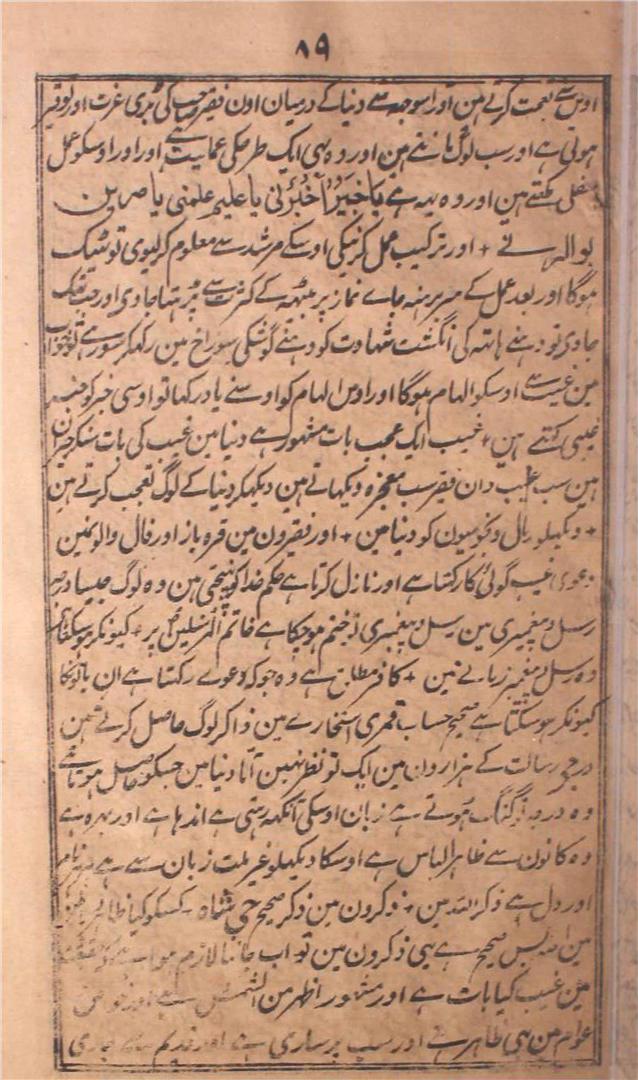 ۸۹
اوس سے تعجب کرتے ہین اور اسوجہ سے دنیا کے درمیان اون فقیر صاحب کی بڑی عزت اور توقیر
ہوتی ہے اور سب لوگ مانتے ہین اور وہ بہی ایک طرحکی عنایت ہے اور اور اوسکو عمل
کہتے ہین اور وہ یہہ ہے یا خَبِیرُ اَخْبِرْنِی یا علیم علمنی یا
اور ترکیب عمل کرنیکی اوسکے مرشد سے معلوم کر لیوی تو ٹہیک
ہوگا اور بعد عمل کے سر برہنہ جاے نماز پر بیٹہہ کے کثرت سے پڑہتا جاوی اور جب تہک
جاوی تو دہنے ہاتہ کی انگشت شہادت کو دہنے گوشکی سوراخ مین رکہکر سو رہے تو خواب
مین غیب سے اوسکو الہام ہوگا اور اوس الہام کو اوسنے یاد رکہا تو اوسی خبر کو خبر
غیبی کہتے ہین + غیب ایک عجب بات مشہور ہے دنیا مین غیب کی بات سنکر حیران
ہین سب غیب دان فقیر سب معجزہ دیکہاتے ہین دیکہکر دنیا کے لوگ تعجب کرتے ہین
+ دیکہلو رمال و نجومیون کو دنیا مین + اور فقیرون مین قرہ باز اور فال والونمین
دعوی غیب گوئی کا رکہتا ہے اور نازل کرتا ہے حکم خدا کو پہنچے ہین وہ لوگ جیسا درجہ
رسل و پیغمبری مین رسل و پیغمبری تو ختم ہو چکا ہے خاتم المرسلین پر + کیونکر ہو سکتا
وہ رسل و پیغمبر زمانے مین + کافر مطلق ہے وہ جو کہ دعوے رکہتا ہے ان باتونکا
کیونکر ہو سکتا ہے صحیح حساب قمری استخارے مین ذاکر لوگ حاصل کرتے ہین
درجہ رسالت کے ہزارون مین ایک تو نظر نہین آتا دنیا مین جسکو حاصل ہوتا ہے
وہ گنگ ہوتے ہے زبان اوسکی آنکہہ رہتی ہے اندہا ہے اور بہرہ ہے
وہ کانون سے ظاہر الباس ہے اوسکا دیکہلو غیر ملت زبان سے ہے
اور دل ہے ذکر اللہ مین + ذکرون مین ذکر صحیح کسکو کیا
مین اللہ بس صحیح ہے یہی ذکرون مین تو اب جاننا لازم ہوا ہے
مین غیب کیا بات ہے اور مشہور اظہر من الشمس ہے اور
عوام مین بہی ظاہر ہے اور سب پر ساری ہے اور قدیم سے جاری